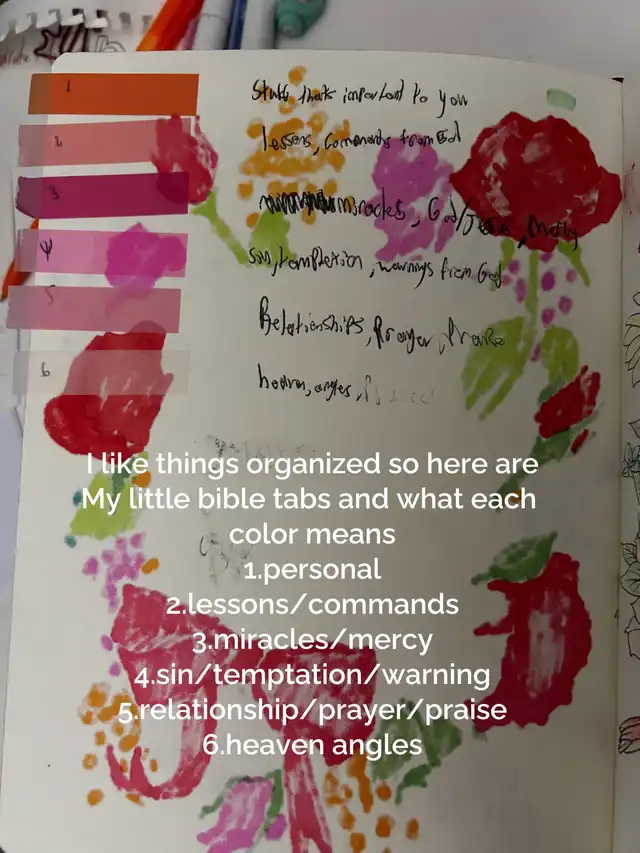 1
Stuff thats important to you
2
lessons, commands from God
3
miracles, God/
4
Sin, temptation, warnings from God
5
Relationships, Prayer, Praise
6
heaven, angles,
I like things organized so here are
My little bible tabs and what each
color means
1.personal
2.lessons/commands
3.miracles/mercy
4.sin/temptation/warning
5.relationship/prayer/praise
6.heaven angles